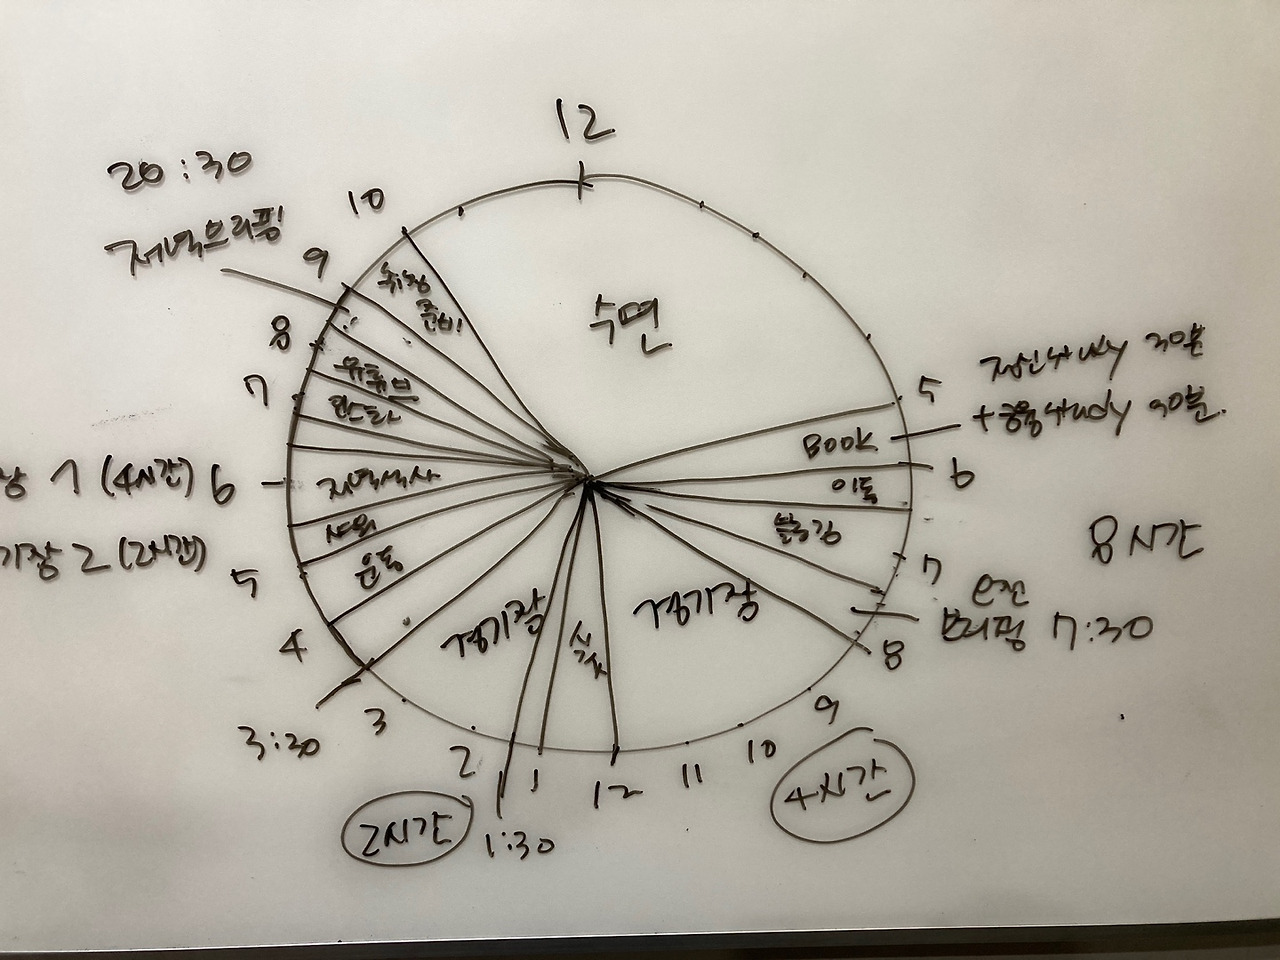 12
20:30
저녁브리핑
10
9
8
7
6
5
4
3:30
3
2
1:30
1
12
11
10
9
8
7
6
5
취침
준비
수면
유튜브
인스타
저녁식사
샤워
운동
경기장
식사
경기장
BOOK
이동
정신study 30분
+ 공용study 90분.
8시간
오전
브리핑 7:30
4시간
2시간
장 1 (4시간)
기장 2 (2시간)